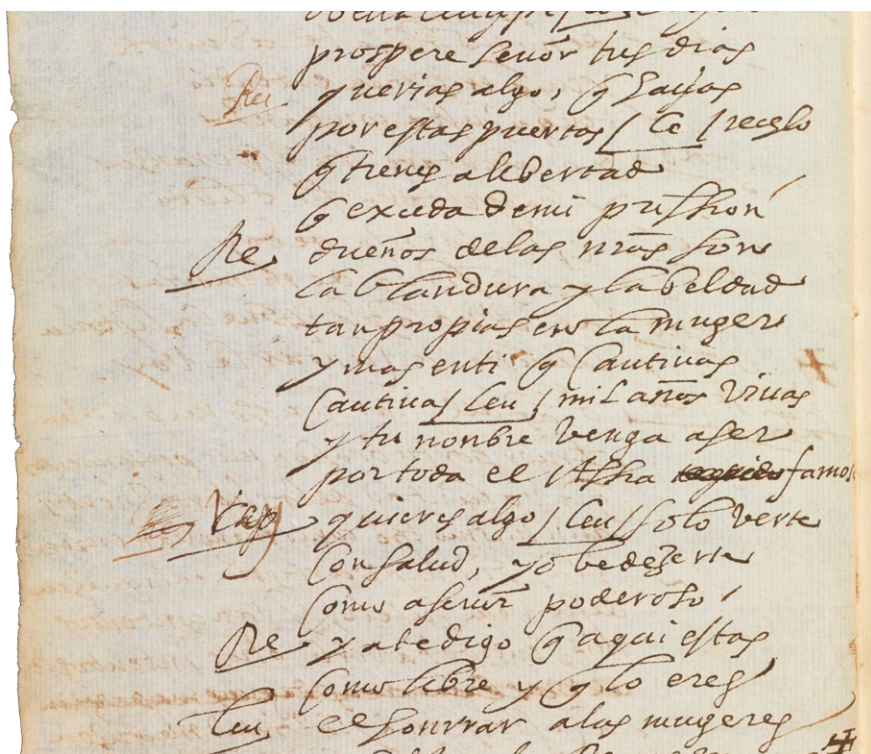 prospere señor tus dias
Rei querias algo, q̃ hayas
por estas puertas / Le / recelo
q̃ tienes alibertad
q̃ exceda demi prission
Re dueños delas nr̃as son
la blandura y la beldad
tan propias en la muger
y mas enti q̃ cautivas
cautiva / Leu / mil años vivas
y tu nonbre venga aser
por toda el Assia famoso
quieres algo / Leu / solo verte
con salud, y obedezerte
como a señor poderoso
Re ya te digo q̃ aqui estas
como libre y q̃ lo eres
Leu el honrrar alas mugeres